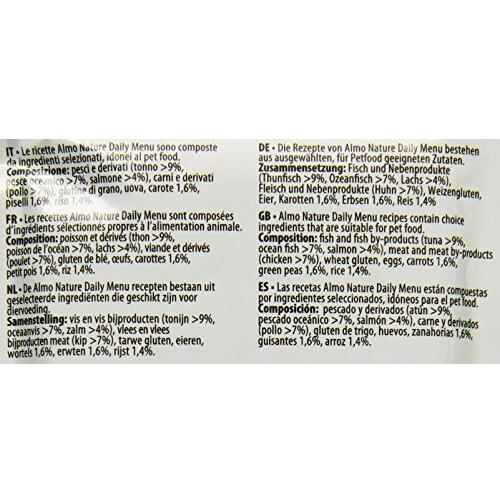 IT • Le ricette Almo Nature Daily Menu sono composte
da ingredienti selezionati, idonei al pet food.
Composizione: pesci e derivati (tonno >9%,
pesce oceanico >7%, salmone >4%), carni e derivati
(pollo >7%), glutine di grano, uova, carote 1,6%,
piselli 1,6%, riso 1,4%.
FR • Les recettes Almo Nature Daily Menu sont composées
d'ingrédients sélectionnés propres à l'alimentation animale.
Composition: poisson et dérivés (thon >9%,
poisson de l'océan >7%, lachs >4%), viande et dérivés
(poulet >7%), gluten de blé, œufs, carottes 1,6%,
petit pois 1,6%, riz 1,4%.
NL • De Almo Nature Daily Menu recepten bestaan uit
geselecteerde ingrediënten die geschikt zijn voor
diervoeding.
Samenstelling: vis en vis bijproducten (tonijn >9%,
oceaanvis >7%, zalm >4%), vlees en vlees
bijproducten meat (kip >7%), tarwe gluten, eieren,
wortels 1,6%, erwten 1,6%, rijst 1,4%.
DE • Die Rezepte von Almo Nature Daily Menu bestehen
aus ausgewählten, für Petfood geeigneten Zutaten.
Zusammensetzung: Fisch und Nebenprodukte
(Thunfisch >9%, Ozeanfisch >7%, Lachs >4%),
Fleisch und Nebenprodukte (Huhn >7%), Weizengluten,
Eier, Karotten 1,6%, Erbsen 1,6%, Reis 1,4%
GB • Almo Nature Daily Menu recipes contain choice
ingredients that are suitable for pet food.
Composition: fish and fish by-products (tuna >9%,
ocean fish >7%, salmon >4%), meat and meat by-products
(chicken >7%), wheat gluten, eggs, carrots 1,6%,
green peas 1,6%, rice 1,4%.
ES • Las recetas Almo Nature Daily Menu están compuestas
por ingredientes seleccionados, idóneos para el pet food.
Composición: pescado y derivados (atún >9%,
pescado oceánico >7%, salmón >4%), carne y derivados
(pollo >7%), gluten de trigo, huevos, zanahorias 1,6%,
guisantes 1,6%, arroz 1,4%.